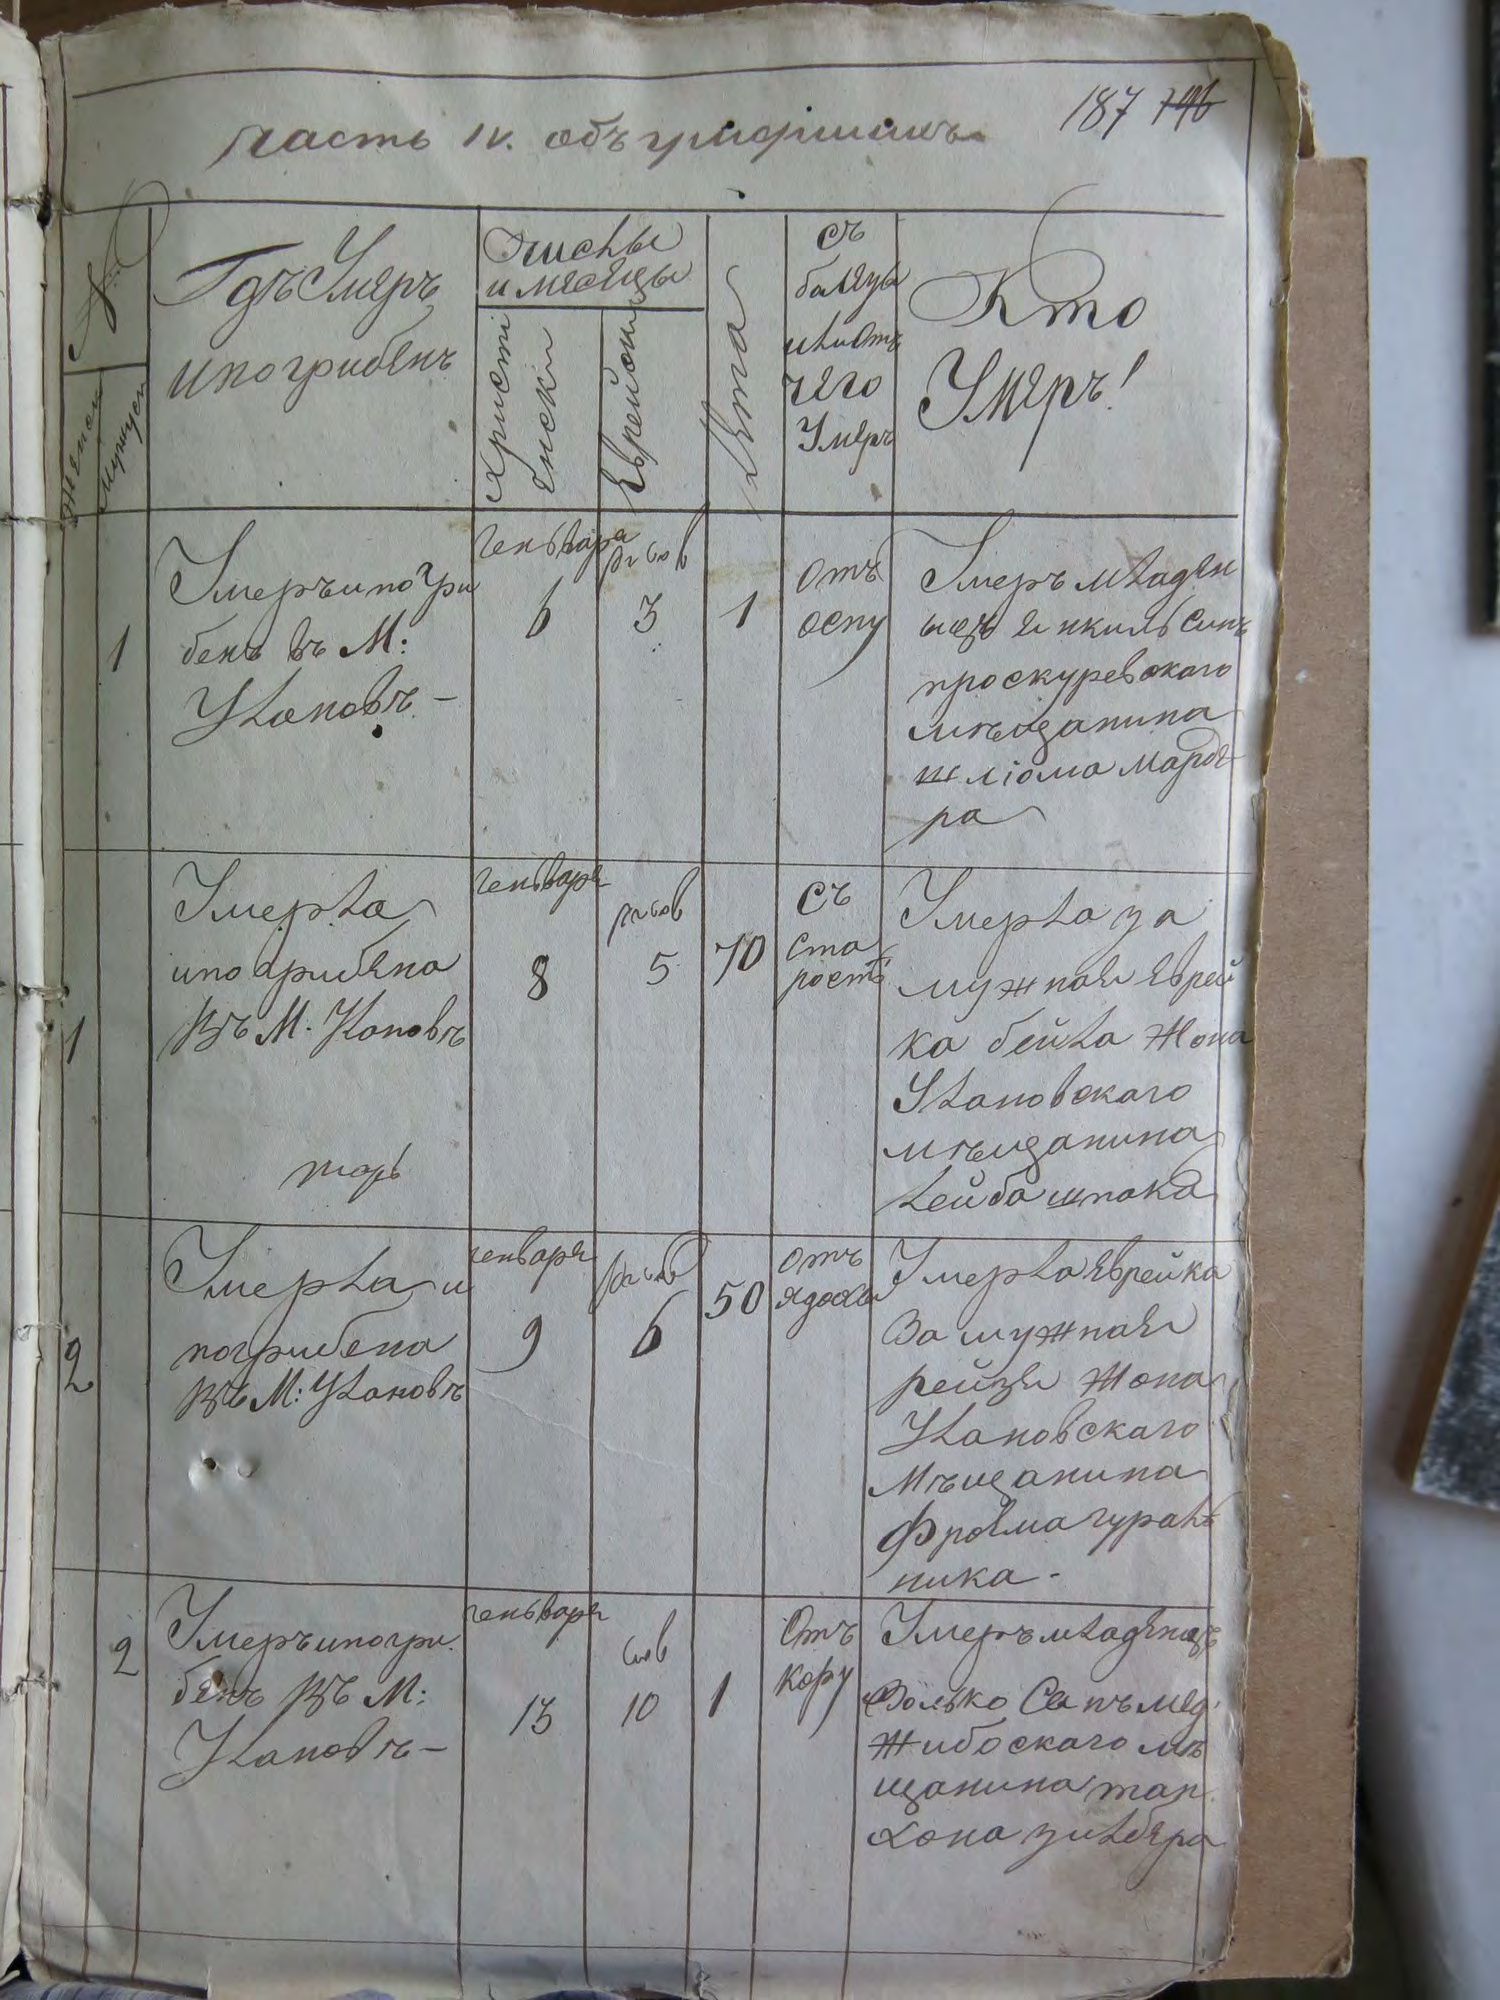 187 196
Часть IV. объ умершихъ
№
Женск
Мужуск
Гдѣ Умеръ
и погрибенъ
Числы
и месяцы
Христі
Енски
Еврейски
Лета
Съ
балезы
или отъ
чего
Умеръ
Кто
Умеръ!
1
Умеръ и погри
бенъ въ М:
Улановѣ —
генваря
6
3
1
отъ
оспу
Умеръ младен
ыцъ Янкиль Синъ
проскуревскаго
мѣщанина
шліома
ра
1
Умерла
и погрибена
въ М. Улановѣ
генваря
8
5
70
съ
ста
рости
Умерла за
мужная Еврей
ка бейла жона
Улановскаго
мѣщанина
лейба шпака
2
Умерла и
погрибена
въ М: Улановѣ
генваря
9
6
50
отъ
Умерла Еврейка
Замужная
рейзя жона
Улановскаго
мѣщанина
Фроема гураль
ника.
2
Умеръ и погри
бенъ въ М:
Улановѣ —
генваря
13
10
1
Отъ
кору
Умеръ младенецъ
Волько Сынъ мед
жибоскаго мѣ
щанина тан
хона зильбера